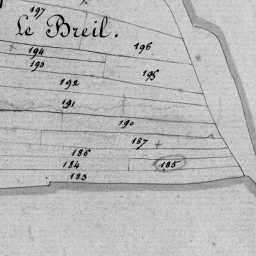 197
Le Breil.
196
194
193
195
192
191
190
187
186
184
185
183